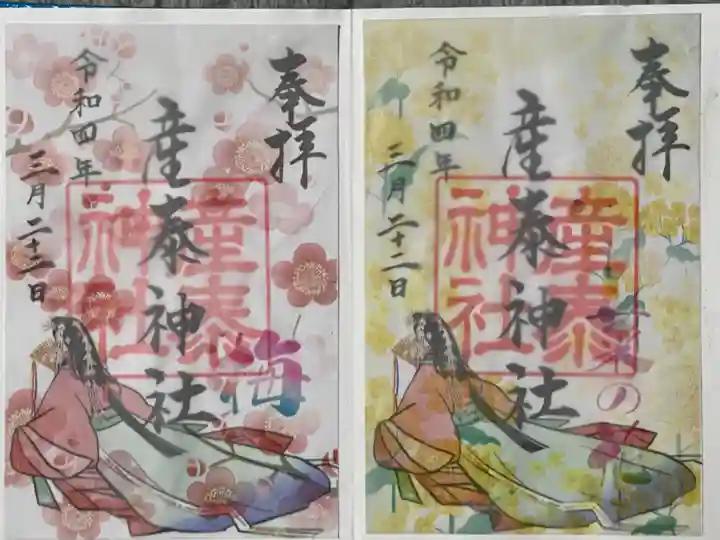 奉拝
産泰神社
令和四年
三月二十二日
産泰
神社
梅
奉拝
産泰神社
令和四年
三月二十二日
産泰
神社
菜の